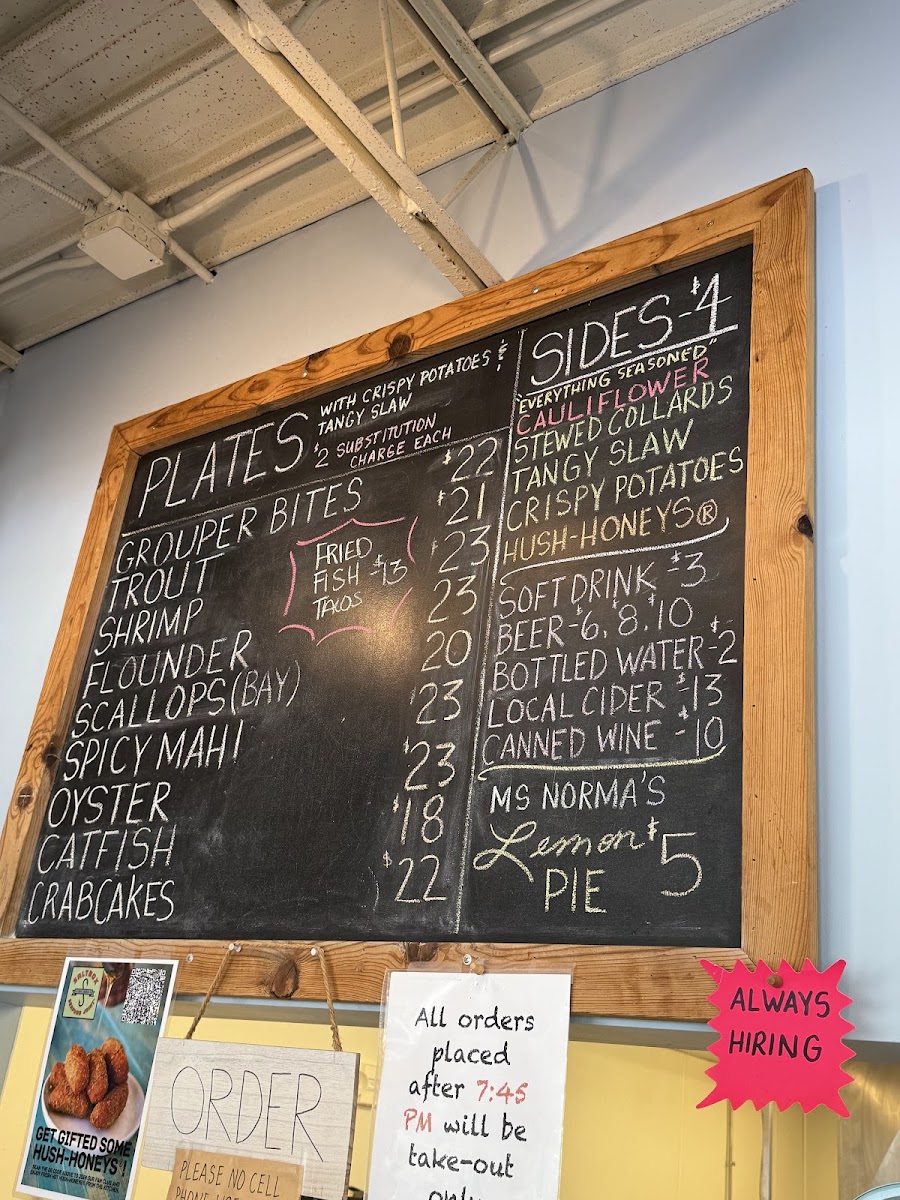 PLATES
WITH CRISPY POTATOES &
TANGY SLAW
$2 SUBSTITUTION
CHARGE EACH
GROUPER BITES $22
TROUT $21
SHRIMP $23
FLOUNDER 23
SCALLOPS (BAY) 20
SPICY MAHI $23
OYSTER $23
CATFISH $18
CRABCAKES $22
FRIED
FISH -$13
TACOS
SIDES -$4
"EVERYTHING SEASONED"
CAULIFLOWER
STEWED COLLARDS
TANGY SLAW
CRISPY POTATOES
HUSH-HONEYS®
SOFT DRINK -$3
BEER -$6, $8, $10
BOTTLED WATER -$2
LOCAL CIDER -$13
CANNED WINE -$10
MS NORMA'S
Lemon $5
PIE
GET GIFTED SOME
HUSH-HONEYS®!
ORDER
PLEASE NO CELL
All orders
placed
after 7:45
PM will be
take-out
only
ALWAYS
HIRING